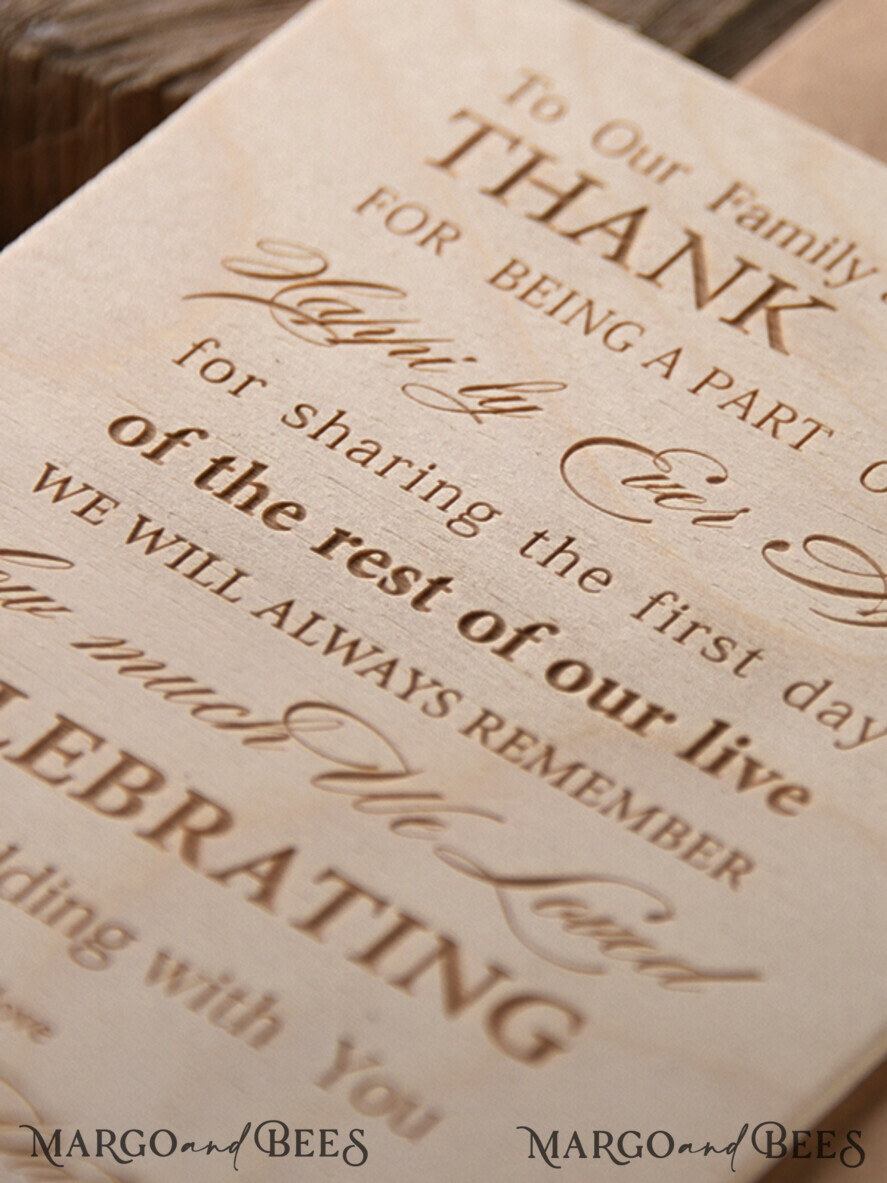 To Our Family
THANK
FOR BEING A PART
Happily Ever
for sharing the first day
of the rest of our live
WE WILL ALWAYS REMEMBER
much We Loved
LEBRATING
dding with You
Love
MARGO and BEES MARGO and BEES